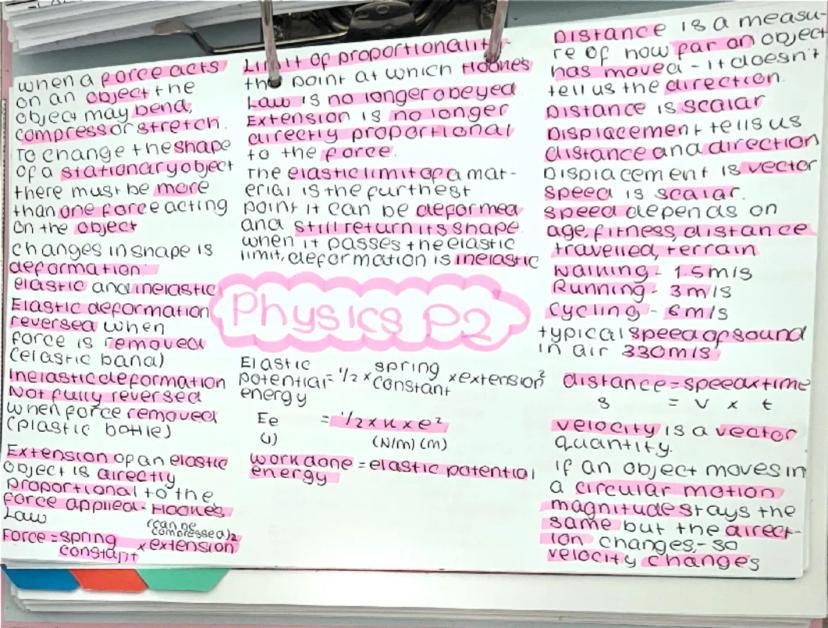 when a force acts
on an object the
object may bend,
compress or stretch.
To change the shape
of a stationary object
there must be more
than one force acting
on the object
changes in shape is
deformation
elastic and inelastic
Elastic deformation
reversed when
force is removed
(elastic band)
Inelastic deformation
Not fully reversed
when force removed
(plastic bottle)
Extension of an elastic
object is directly
proportional to the
force applied - Hookes
Law
(can be
compressed)
Force = spring
constant × extension
Limit of proportionality -
the point at which Hookes
Law is no longer obeyed
Extension is no longer
directly proportional
to the force.
The elastic limit of a mat-
erial is the furthest
point it can be deformed
and still return its shape
when it passes the elastic
limit, deformation is inelastic
Physics P2
Elastic
potential = 1/2 × spring
constant × extension²
energy
Ee = 1/2 × k × e²
(J) (N/m) (m)
work done = elastic potential
energy
Distance is a measu-
re of how far an object
has moved - it doesn't
tell us the direction.
Distance is scalar
Displacement tells us
distance and direction
Displacement is vector
speed is scalar.
speed depends on
age, fitness, distance
travelled, terrain
Walking - 1.5m/s
Running - 3m/s
Cycling - 6m/s
typical speed of sound
in air 330m/s
distance = speed × time
s = v × t
velocity is a vector
quantity.
if an object moves in
a circular motion
magnitude stays the
same but the direct-
ion changes - so
velocity changes